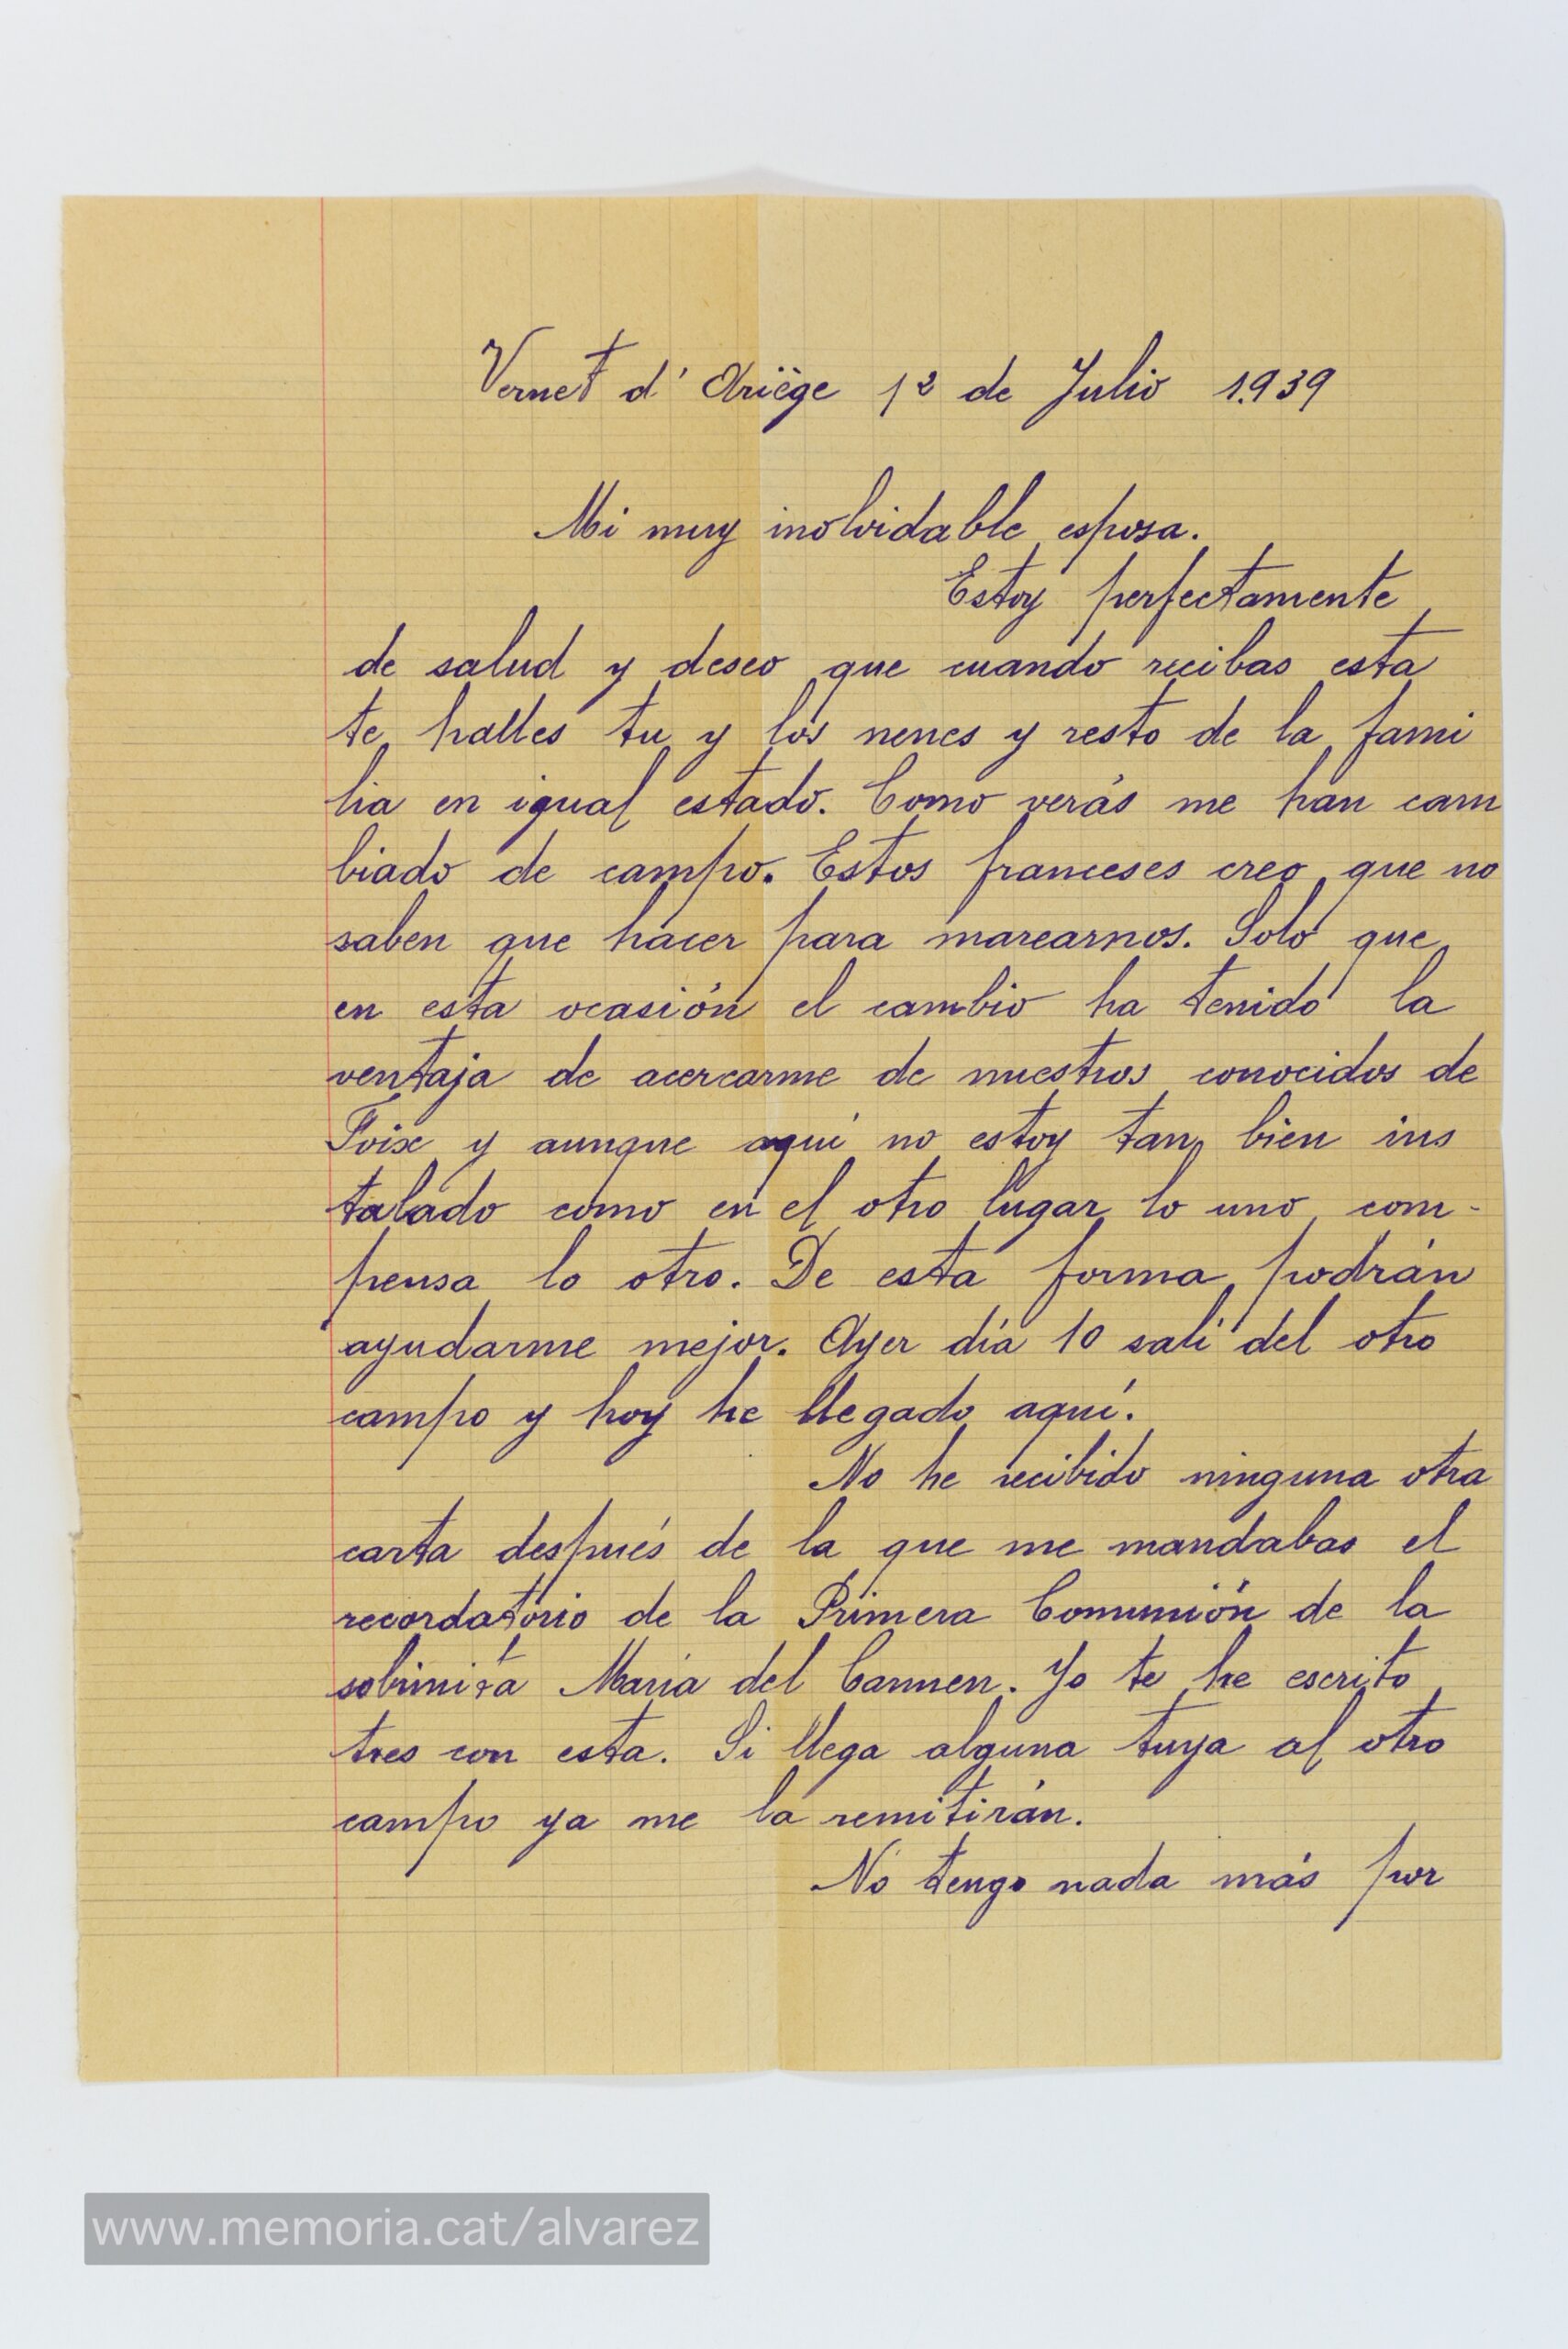 Vernet d' Ariège 12 de Julio 1.939
Mi muy inolvidable esposa.
Estoy perfectamente
de salud y deseo que cuando recibas esta
te halles tu y los nenes y resto de la fami
lia en igual estado. Como verás me han cam
biado de campo. Estos franceses creo que no
saben que hacer para marearnos. Solo que
en esta ocasión el cambio ha tenido la
ventaja de acercarme de nuestros conocidos de
Foix y aunque aquí no estoy tan bien ins
talado como en el otro lugar lo uno com-
pensa lo otro. De esta forma podrán
ayudarme mejor. Ayer día 10 salí del otro
campo y hoy he llegado aquí.
No he recibido ninguna otra
carta después de la que me mandabas el
recordatorio de la Primera Comunión de la
sobrinita María del Carmen. Yo te he escrito
tres con esta. Si llega alguna tuya al otro
campo ya me la remitirán.
No tengo nada más por
www.memoria.cat/alvarez